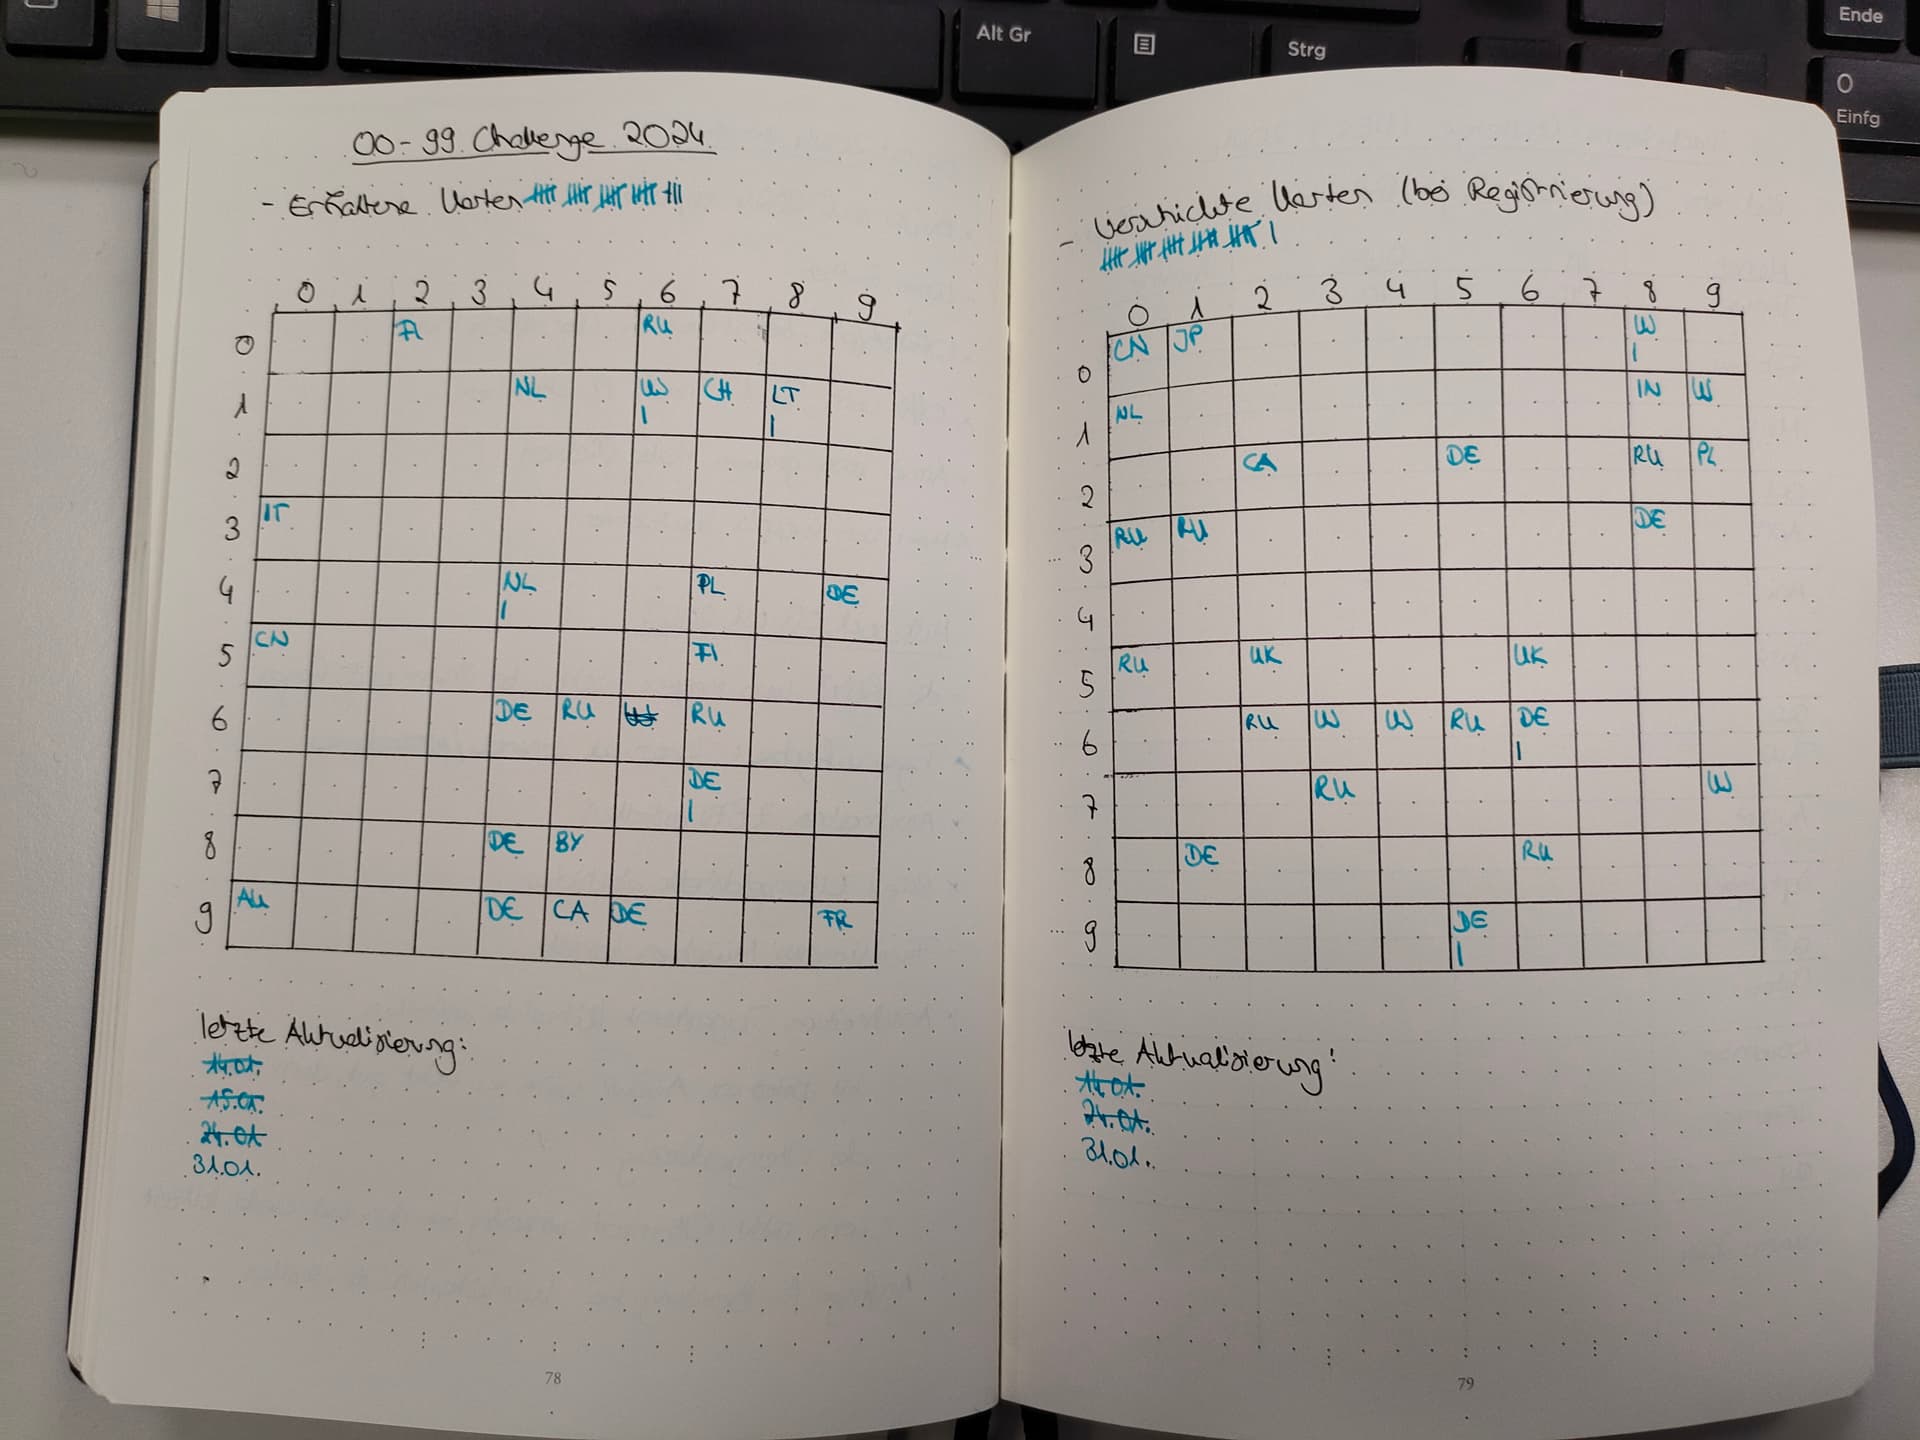 Alt Gr
Strg
Ende
0
Einfg
00-99 Challenge 2024
- Erhaltene Karten
0 1 2 3 4 5 6 7 8 9
0 FI RU
1 NL W CH LT
2
3 IT
4 NL PL DE
5 CN FI
6 DE RU RU
7 DE
8 DE BY
9 AU DE CA DE FR
letzte Aktualisierung:
14.01.
15.01.
24.01.
31.01.
78
- Verschickte Karten (bei Registrierung)
0 1 2 3 4 5 6 7 8 9
0 CN JP W
1 NL IN W
2 CA DE RU PL
3 RU RU DE
4
5 RU UK UK
6 RU W W RU DE
7 RU W
8 DE RU
9 DE
letzte Aktualisierung:
14.01.
24.01.
31.01.
79